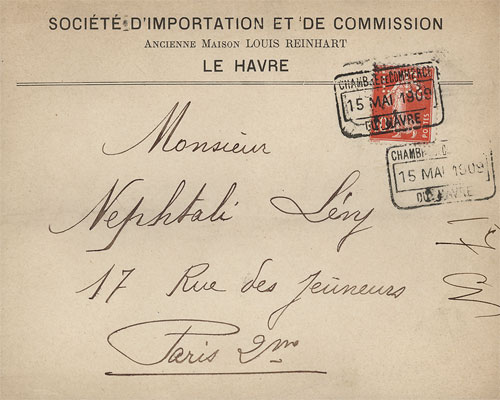 SOCIÉTÉ D'IMPORTATION ET DE COMMISSION
ANCIENNE MAISON LOUIS REINHART
LE HAVRE
CHAMBRE DE COMMERCE
15 MAI 1909
DU HAVRE
POSTES
CHAMBRE
15 MAI 1909
DU HAVRE
Monsieur
Nephtali Lévy
17 Rue des Jeûneurs
Paris 2me